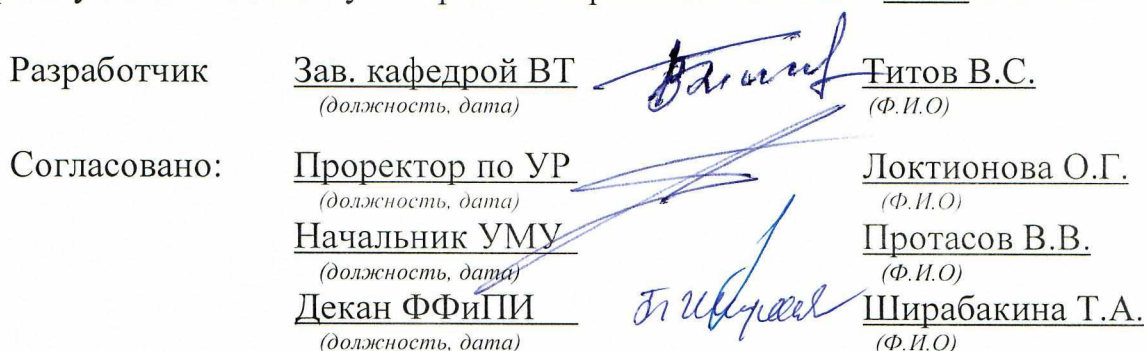 Разработчик Зав. кафедрой ВТ Титов В.С.
(должность, дата) (Ф.И.О)
Согласовано: Проректор по УР Локтионова О.Г.
(должность, дата) (Ф.И.О)
Начальник УМУ Протасов В.В.
(должность, дата) (Ф.И.О)
Декан ФФиПИ Ширабакина Т.А.
(должность, дата) (Ф.И.О)